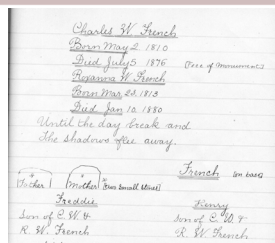 Charles W. French
Born May 2 1810
Died July 5 1876 (Face of Monument)
Roxanna W. French
Born Mar 23. 1813
Died Jan 10. 1880
Until the day break and
the shadows flee away.
French (on base)
Father Mother (two small stones)
Freddie Henry
Son of C. W. & Son of C. W. &
R. W. French R. W. French